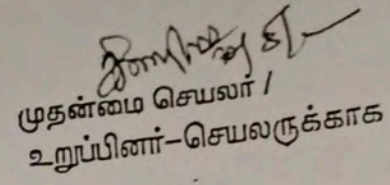 முதன்மை செயலர் /
உறுப்பினர்-செயலருக்காக